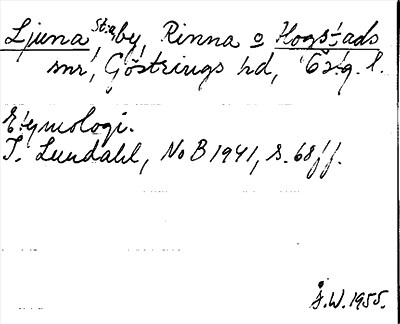 Ljuna, by, Rinna o Hogstads
snr, Göstrings hd, Östg. l.
Etymologi.
I. Lundahl, NoB 1941, s. 68 ff.
Å.W. 1955.